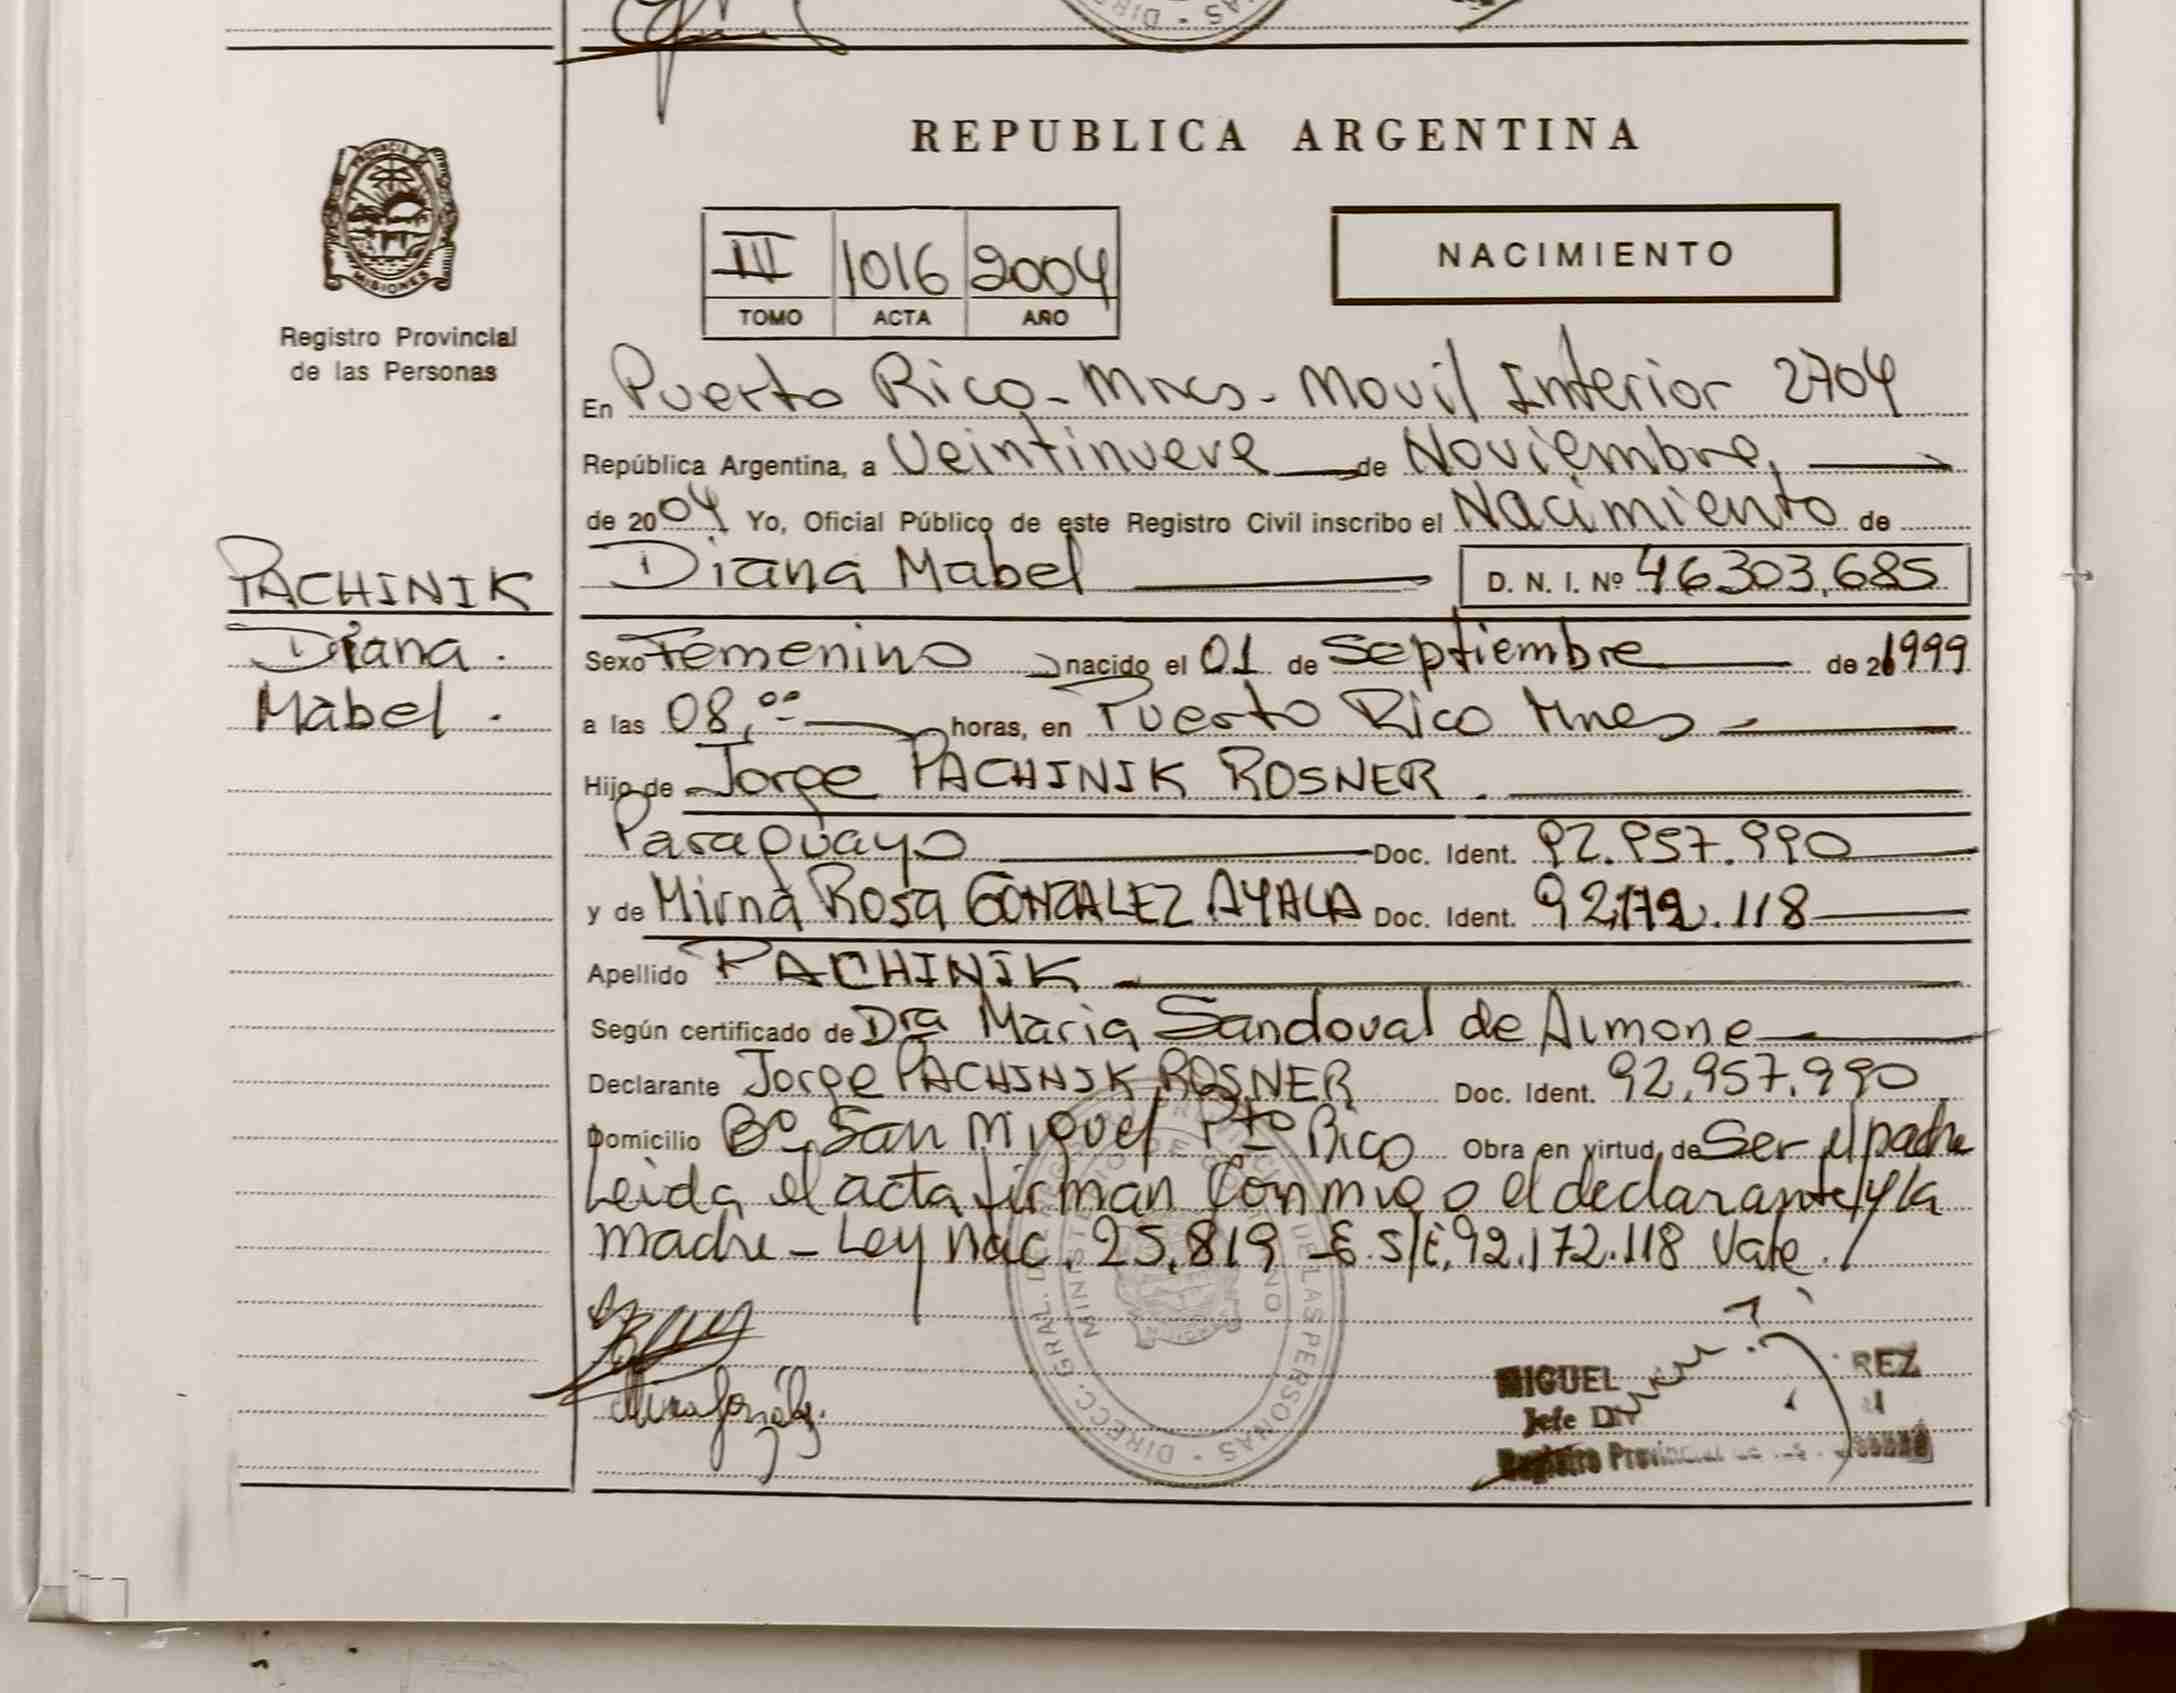 REPUBLICA ARGENTINA
PROVINCIA DE MISIONES
Registro Provincial
de las Personas
III 1016 2004
TOMO ACTA AÑO
NACIMIENTO
En Puerto Rico - Mnes - Movil Interior 2704
República Argentina, a Veintinueve de Noviembre,
de 2004 Yo, Oficial Público de este Registro Civil inscribo el Nacimiento de
Diana Mabel D. N. I. Nº 46.303.685
PACHINIK
Diana
Mabel
Sexo Femenino nacido el 01 de Septiembre de 1999
a las 08,00 horas, en Puerto Rico Mnes
Hijo de Jorge PACHINIK ROSNER
Paraguayo Doc. Ident. 92.957.990
y de Mirna Rosa GONZALEZ AYALA Doc. Ident. 92.172.118
Apellido PACHINIK
Según certificado de Dra Maria Sandoval de Aimone
Declarante Jorge PACHINIK ROSNER Doc. Ident. 92.957.990
Domicilio Bº San Miguel Pto Rico Obra en virtud de Ser el padre
Leida el acta firman Conmigo el declarante y la
madre - Ley Nac. 25.819 - E. s/i. 92.172.118 Vale.
DIRECC. GRAL. DE LAS PERSONAS
MINISTERIO DE GOBIERNO
MIGUEL REZ
Jefe
Registro Provincial de las Personas